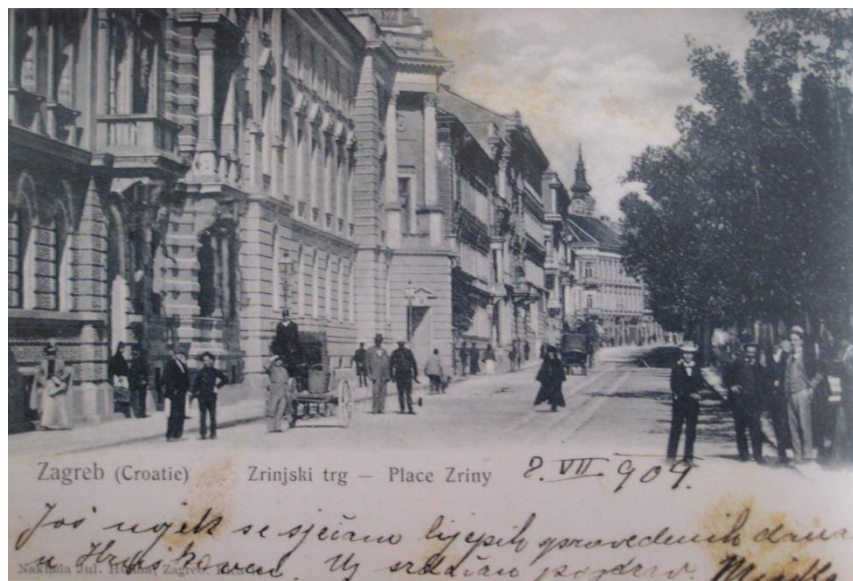 Zagreb (Croatie) Zrinjski trg – Place Zriny 8. VII 909.
Još uvjek se sjećam lijepih sprovedenih dana
u Uz srdačan pozdrav
Naklada Jul. Hühna, Zagreb,